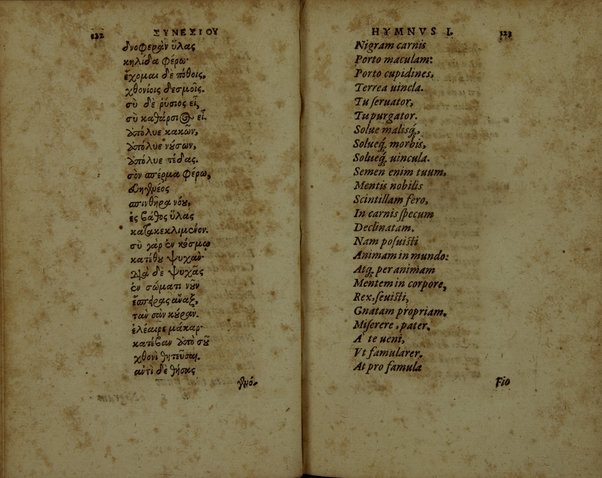 122 ΣΥΝΕΣΙΟΥ
δνοφερὰν ὕλας
κηλίδα φέρω·
ἔχομαι δὲ πόθοις,
χθονίοις δεσμοῖς.
σὺ δὲ ῥύσιος εἶ,
σὺ καθάρσιος εἶ.
ἀπόλυε κακῶν,
ἀπόλυε νόσων,
ἀπόλυε πέδας.
σὸν σπέρμα φέρω,
εὐηγενέος
σπινθῆρα νόου,
ἐς βάθος ὕλας
κατακεκλιμένον.
σὺ γὰρ ἐν κόσμῳ
κατέθου ψυχὰν·
διὰ δὲ ψυχᾶς
ἐν σώματι νοῦν
ἔσπειρας ἄναξ,
τὰν σὰν κούραν.
ἐλέαιρε μάκαρ·
κατέβαν ἀπὸ σοῦ
χθονὶ θητεῦσαι.
ἀντὶ δὲ θήσας
γενό-
HYMNVS I. 123
Nigram carnis
Porto maculam:
Porto cupidines,
Terrea uincla.
Tu seruator,
Tu purgator.
Solue malisq́,
Solueq́; morbis,
Solueq́; uincula.
Semen enim tuum,
Mentis nobilis
Scintillam fero,
In carnis specum
Declinatam.
Nam posuisti
Animam in mundo:
Atq; per animam
Mentem in corpore,
Rex, seuisti,
Gnatam propriam.
Miserere, pater.
A' te ueni,
Vt famularer.
At pro famula
Fio